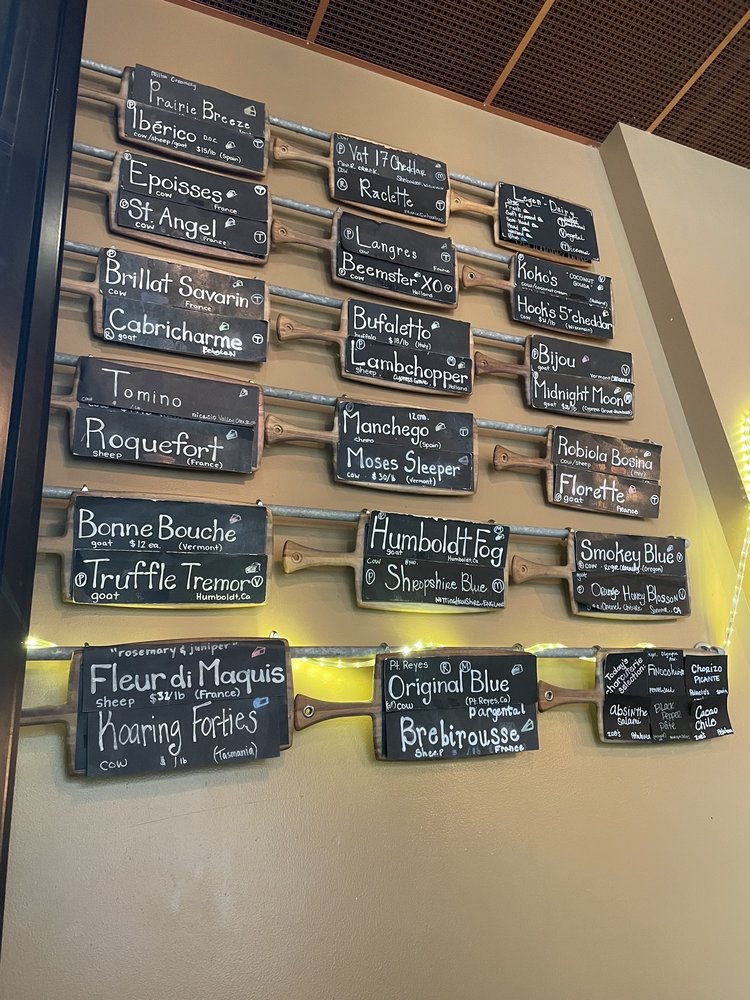 Milton Creamery
Prairie Breeze
Ibérico D.O.C.
cow/sheep/goat $15/lb (Spain)
P Vat 17 Cheddar
cow
R Raclette
Legend - Dairy
Epoisses
cow France
St. Angel
cow France
Langres
cow France
Beemster XO
Holland
Koko's "COCONUT GOUDA"
cow/coconut cream (Holland)
Hooks 5yr cheddar
cow (Wisconsin)
Brillat Savarin
cow France
Cabricharme
goat
Bufaletto
buffalo $18/lb (Italy)
Lambchopper
sheep Cypress Grove Holland
P Bijou
goat Vermont
P Midnight Moon
goat (Cypress Grove-Humboldt)
Tomino
cow nicasio Valley Cheese Co
Roquefort
sheep (France)
12 mo.
Manchego
(Spain)
Moses Sleeper
cow $30/lb (Vermont)
Robiola Bosina
cow/sheep (Italy)
Florette
goat France
Bonne Bouche
goat $12 ea. (Vermont)
P Truffle Tremor V
goat Humboldt, Ca
P Humboldt Fog
goat Humboldt, Ca
P Shropshire Blue M
Nottinghamshire, ENGLAND
Smokey Blue
cow (Oregon)
Orange Honey Blossom
Sonoma, CA
"rosemary & juniper"
Fleur di Maquis
sheep $32/lb (France)
Roaring Forties
cow $ /lb (Tasmania)
Pt. Reyes R M
Original Blue
cow (Pt. Reyes, Ca)
D'argental
Brebirousse
Sheep $ /lb (France)
Today's charcuterie selection:
Finocchiona
CHORIZO PICANTE
absinthe Salami
Black Pepper Pâté
Cacao Chile